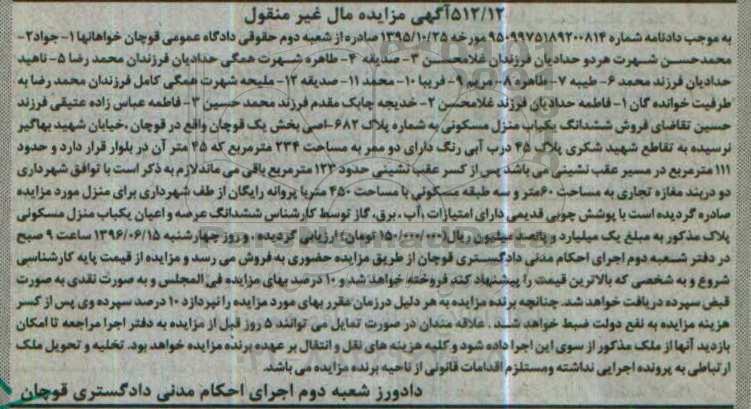 ۵۱۲/۱۲آگهی مزایده مال غیر منقول
به موجب دادنامه شماره ۹۵۰۹۹۷۵۱۸۹۲۰۰۸۱۴ مورخه ۱۳۹۵/۱۰/۲۵ صادره از شعبه دوم حقوقی دادگاه عمومی قوچان خواهانها ۱- جواد ۲-
محمدحسن شهرت هردو حدادیان فرزندان غلامحسن ۳- صدیقه ۴- طاهره شهرت همگی حدادیان فرزندان محمد رضا ۵- ناهید
حدادیان فرزند محمد ۶- طیبه ۷- طاهره ۸- مریم ۹- فریبا ۱۰- محمد ۱۱- صدیقه ۱۲- ملیحه شهرت همگی کامل فرزندان محمد رضا به
طرفیت خوانده گان ۱- فاطمه حدادیان فرزند غلامحسن ۲- خدیجه چابک مقدم فرزند محمد حسین ۳- فاطمه عباس زاده عتیقی فرزند
حسین تقاضای فروش ششدانگ یکباب منزل مسکونی به شماره پلاک ۶۸۲-اصلی بخش یک قوچان واقع در قوچان ،خیابان شهید بهاگیر
نرسیده به تقاطع شهید شکری پلاک ۴۵ درب آبی رنگ دارای دو ممر به مساحت ۲۳۴ مترمربع که ۴۵ متر آن در بلوار قرار دارد و حدود
۱۱۱ مترمربع در مسیر عقب نشینی می باشد پس از کسر عقب نشینی حدود ۱۲۳ مترمربع باقی می ماندلازم به ذکر است با توافق شهرداری
دو دربند مغازه تجاری به مساحت ۶۰متر و سه طبقه مسکونی با مساحت ۴۵۰ متربا پروانه رایگان از طف شهرداری برای منزل مورد مزایده
صادره گردیده است با پوشش چوبی قدیمی دارای امتیازات ،آب ، برق، گاز توسط کارشناس ششدانگ عرصه و اعیان یکباب منزل مسکونی
پلاک مذکور به مبلغ یک میلیارد و پانصد میلیون ریال(۱۵۰/۰۰۰/۰۰۰ تومان)ارزیابی گردیده . و روز چهارشنبه ۱۳۹۶/۰۶/۱۵ ساعت ۹ صبح
در دفتر شعبه دوم اجرای احکام مدنی دادگستری قوچان از طریق مزایده حضوری به فروش می رسد و مزایده از قیمت پایه کارشناسی
شروع و به شخصی که بالاترین قیمت را پیشنهاد کند فروخته خواهد شد و ۱۰ درصد بهای مزایده فی المجلس و به صورت نقدی به صورت
قبض سپرده دریافت خواهد شد. چنانچه برنده مزایده به هر دلیل درزمان مقرر بهای مورد مزایده را نپردازد ۱۰ درصد سپرده وی پس از کسر
هزینه مزایده به نفع دولت ضبط خواهد شد . علاقه مندان در صورت تمایل می توانند ۵ روز قبل از مزایده به دفتر اجرا مراجعه تا امکان
بازدید آنها از ملک مذکور از سوی این اجرا داده شود و کلیه هزینه های نقل و انتقال بر عهده برنده مزایده خواهد بود. تخلیه و تحویل ملک
ارتباطی به پرونده اجرایی نداشته ومستلزم اقدامات قانونی از ناحیه برنده مزایده می باشد.
دادورز شعبه دوم اجرای احکام مدنی دادگستری قوچان